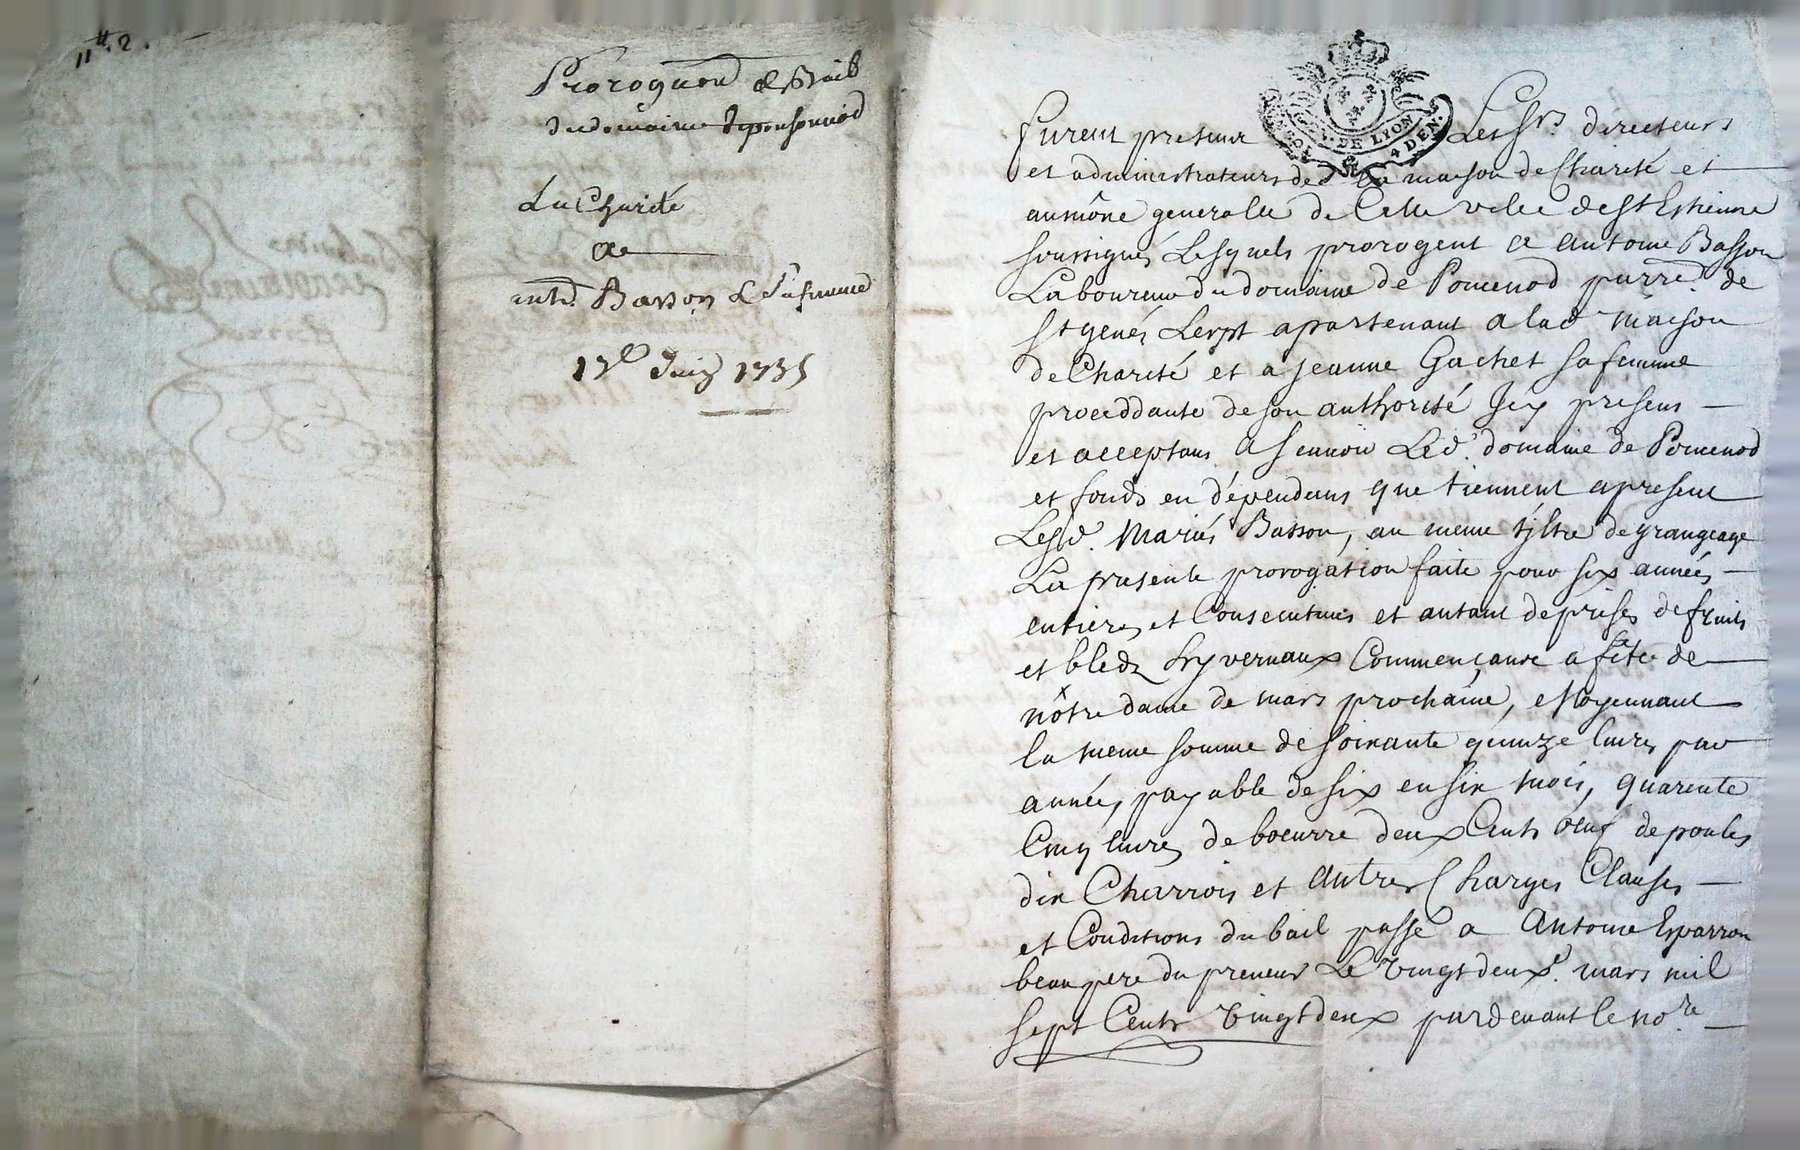 11 tt. 2.
Prorogaōn de Bail
du domaine de ponsonnod
La Charité
a
anth. Basson & sa femme
17e Juin 1735
GEN. DE LYON
4 DEN.
furent presens Les Srs. directeurs
et administrateurs de la maison de Charité et
aumône generalle de Cette ville de St Estienne
soussignés Lesquels prorogent a Antoine Basson
Laboureur du domaine de Pomenod parre. de
St genés Lerpt apartenant a lad. maison
de Charité et a jeanne Gachet sa femme
proceddante de son authorité Jcy presens
et acceptans a Scavoir Led. domaine de Pomenod
et fonds en dépendans que tiennent apresent
Lesd. Mariés Basson, au meme tiltre de grangeage
La presente prorogation faite pour six années
entieres et Consecutives et autant de prises de fruits
et bleds hyvernaux Commençans a la fête de
nôtre dame de mars prochaine, Moyennant
la meme somme de soixante quinze livres par
année, payable de six en six mois, quarente
Cinq livres de boeurre deux Cents oeuf de poules
dix Charrois et Autres Charges Clauses
et Conditions du bail passé a Antoine Esparron
beau pere du preneur Le vingt deuxe. mars mil
sept Cents vingt deux pardevant le nore